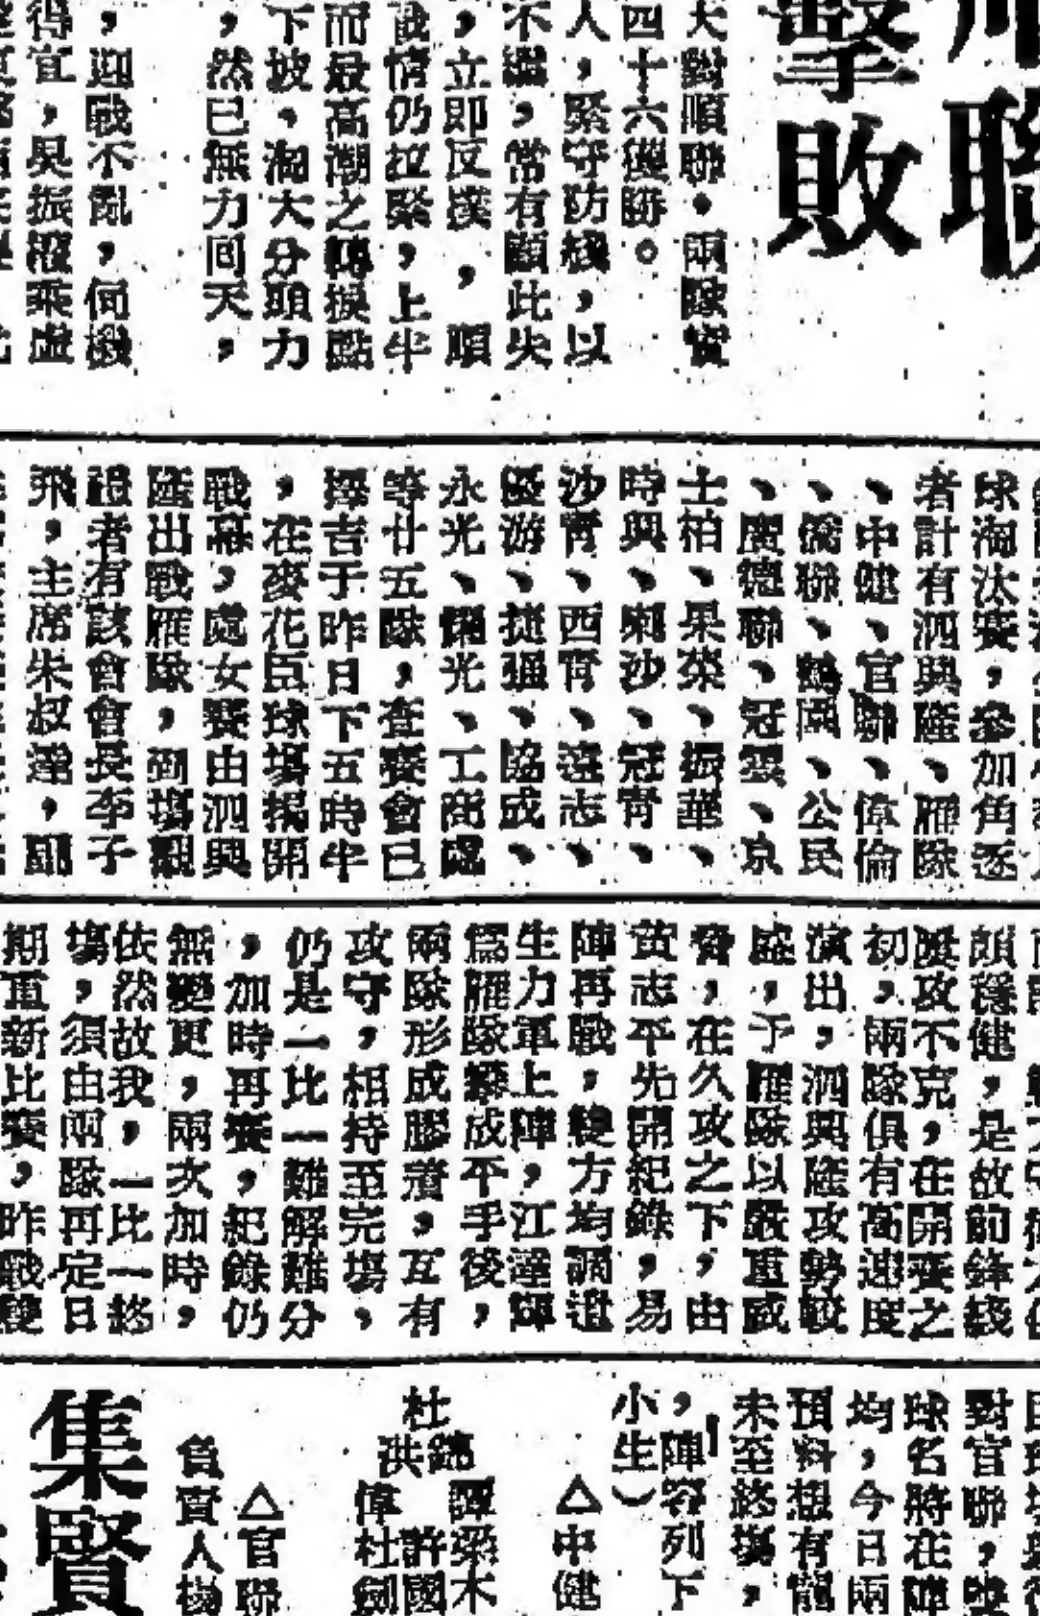 聯
擊敗
大對順聯，兩隊實
四十六獲勝。
人，緊守防綫，以
不繼，常有顧此失
，立即反撲，順
戰情仍拉緊，上半
而最高潮之轉捩點
下坡，淘大分頭力
，然已無力回天，
，迎戰不亂，伺機
得宜，吳振
乘虛
球淘汰賽，參加角逐
者計有泗興隆、雁隊
、中健、官聯、偉倫
、僑聯、鶴園、公民
、廣德聯、冠雲、京
士柏、果榮、振華、
時興、喇沙、冠青、
沙青、西青、遠志、
優游、捷通、協成、
永光、光、工商處
等廿五隊，查賽會已
擇吉于昨日下五時半
，在麥花臣球場揭開
戰幕，處女賽由泗興
隆出戰雁隊，到塲觀
禮者有該會會長李子
飛，主席朱叔達，
顏穩健，是故前鋒綫
屢攻不克，在開賽之
初，兩隊俱有高速度
演出，泗興隆攻勢較
盛，予雁隊以嚴重威
脅，在久攻之下，由
黃志平先開紀錄，易
陣再戰，雙方均調進
生力軍上陣，江達輝
爲雁隊掙成平手後，
兩隊形成膠着，互有
攻守，相持至完塲，
仍是一比一難解難分
，加時再賽，紀錄仍
無變更，兩次加時，
依然故我，一比一終
塲，須由兩隊再定日
期重新比賽，昨戰雙
對官聯，
球名將在陣
均，今日兩
預料想有龍
未至終塲，
，陣容列下
小生）
△中健
譚梁木
杜錦 許國
洪 杜劍
偉
△官聯
負責人楊
集賢